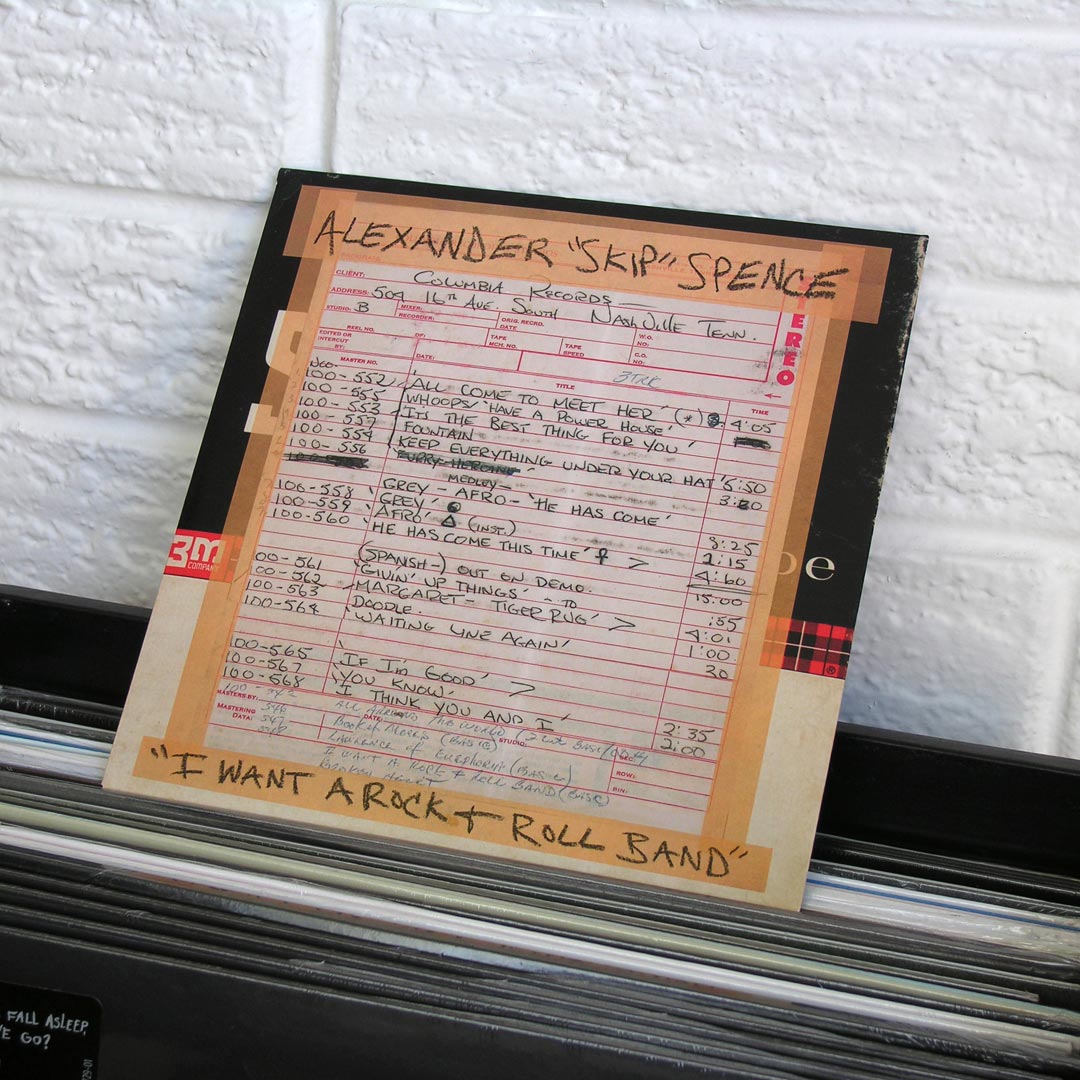 ALEXANDER "SKIP" SPENCE
STEREO
CLIENT: COLUMBIA RECORDS
ADDRESS: 504 16TH AVE. SOUTH NASHVILLE TENN.
STUDIO: B MIXER: RECORDER: ORIG. RECRD. DATE W.O. NO:
REEL NO. OF: TAPE MCH. NO. TAPE SPEED C.O. NO:
EDITED OR INTERCUT BY:
MASTER NO. DATE: TITLE TIME
3TRK
NCO-
100-552 'ALL COME TO MEET HER' (*) 4:05
100-555 WHOOPS/'HAVE A POWER HOUSE'
100-553 'ITS THE BEST THING FOR YOU'
100-557 FOUNTAIN
100-554 KEEP EVERYTHING UNDER YOUR HAT' 5:50
100-556 FURRY HEROINE 3:20
MEDLEY-
100-558 'GREY - AFRO - 'HE HAS COME' 3:25
100-559 'GREY' 2:15
100-560 'AFRO' (INST.)
HE HAS COME THIS TIME' 15:00
(SPANISH-) OUT ON DEMO. :55
00-561 'GIVIN' UP THINGS' 4:01
00-562 MARGARET - TO TIGER RUG' 1:00
100-563 DOODLE. 30
100-564 'WAITING LINE AGAIN'
100-565 'IF I'M GOOD'
100-567 'YOU KNOW' 2:35
100-568 'I THINK YOU AND I' 2:00
MASTERS BY:
ALL AROUND THE WORLD
MASTERING DATA: DATE: STUDIO: SEC:
BOOK OF MOSES (BASIC)
LAWRENCE OF EUPHORIA (BASIC) ROW:
I WANT A ROCK + ROLL BAND (BASIC) BIN:
BROKEN HEART
"I WANT A ROCK + ROLL BAND"
3M
COMPANY
pe
®
FALL ASLEEP,
GO?